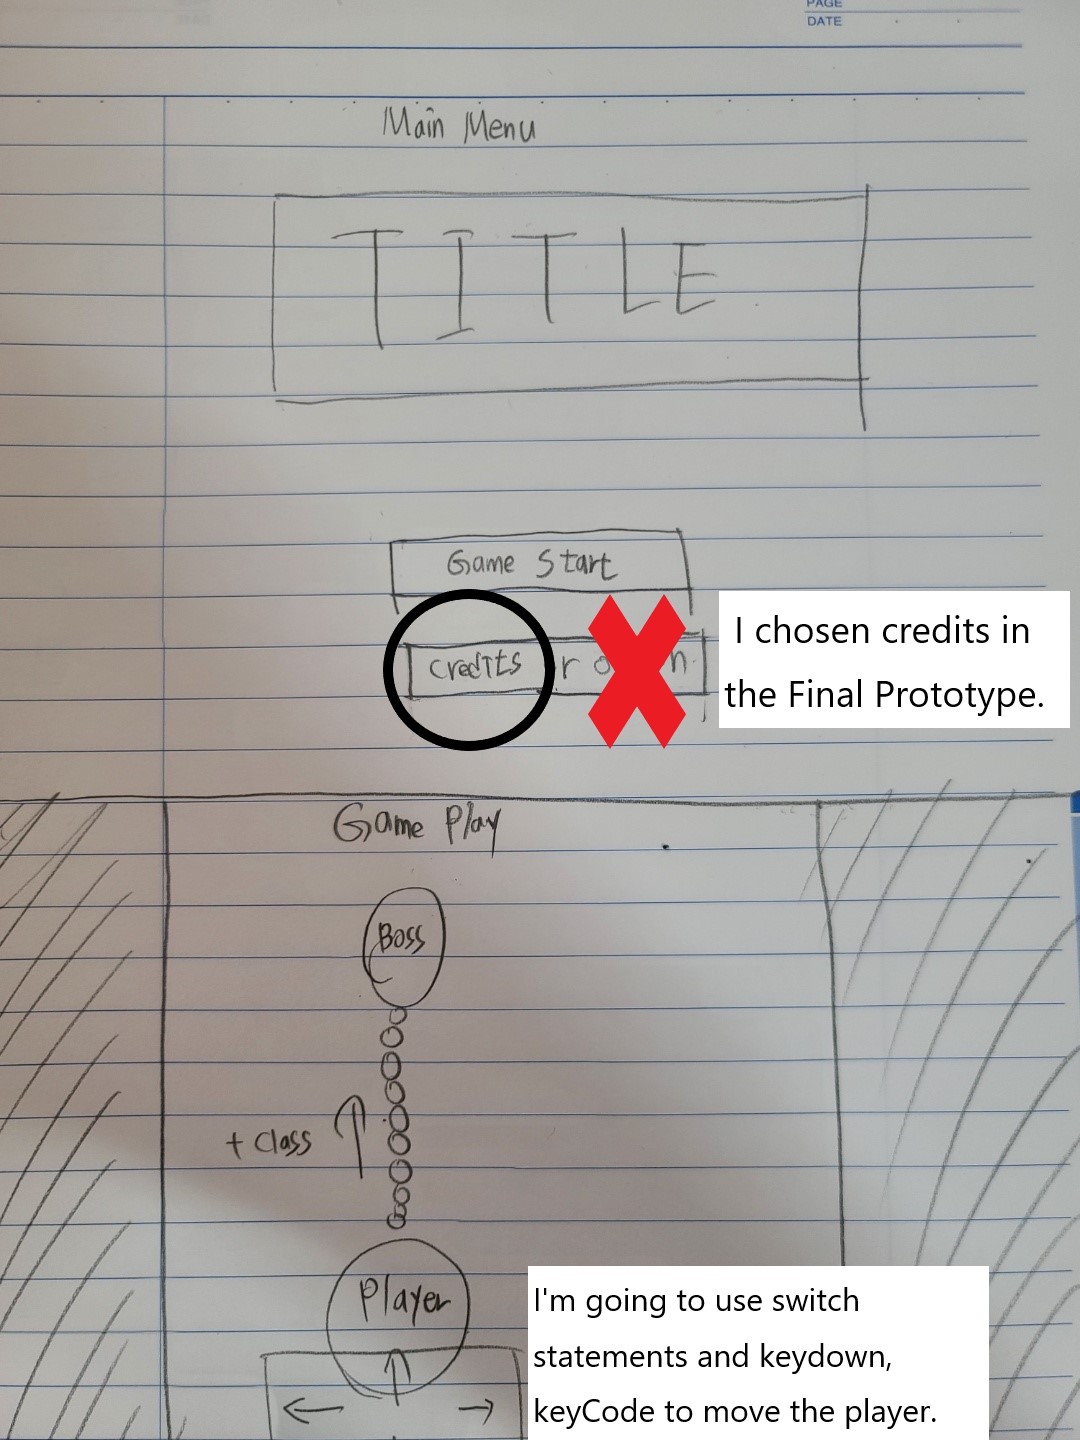 PAGE
DATE
Main Menu
TITLE
Game Start
credits or
I chosen credits in
the Final Prototype.
Game Play
Boss
+ class
Player
I'm going to use switch
statements and keydown,
keyCode to move the player.